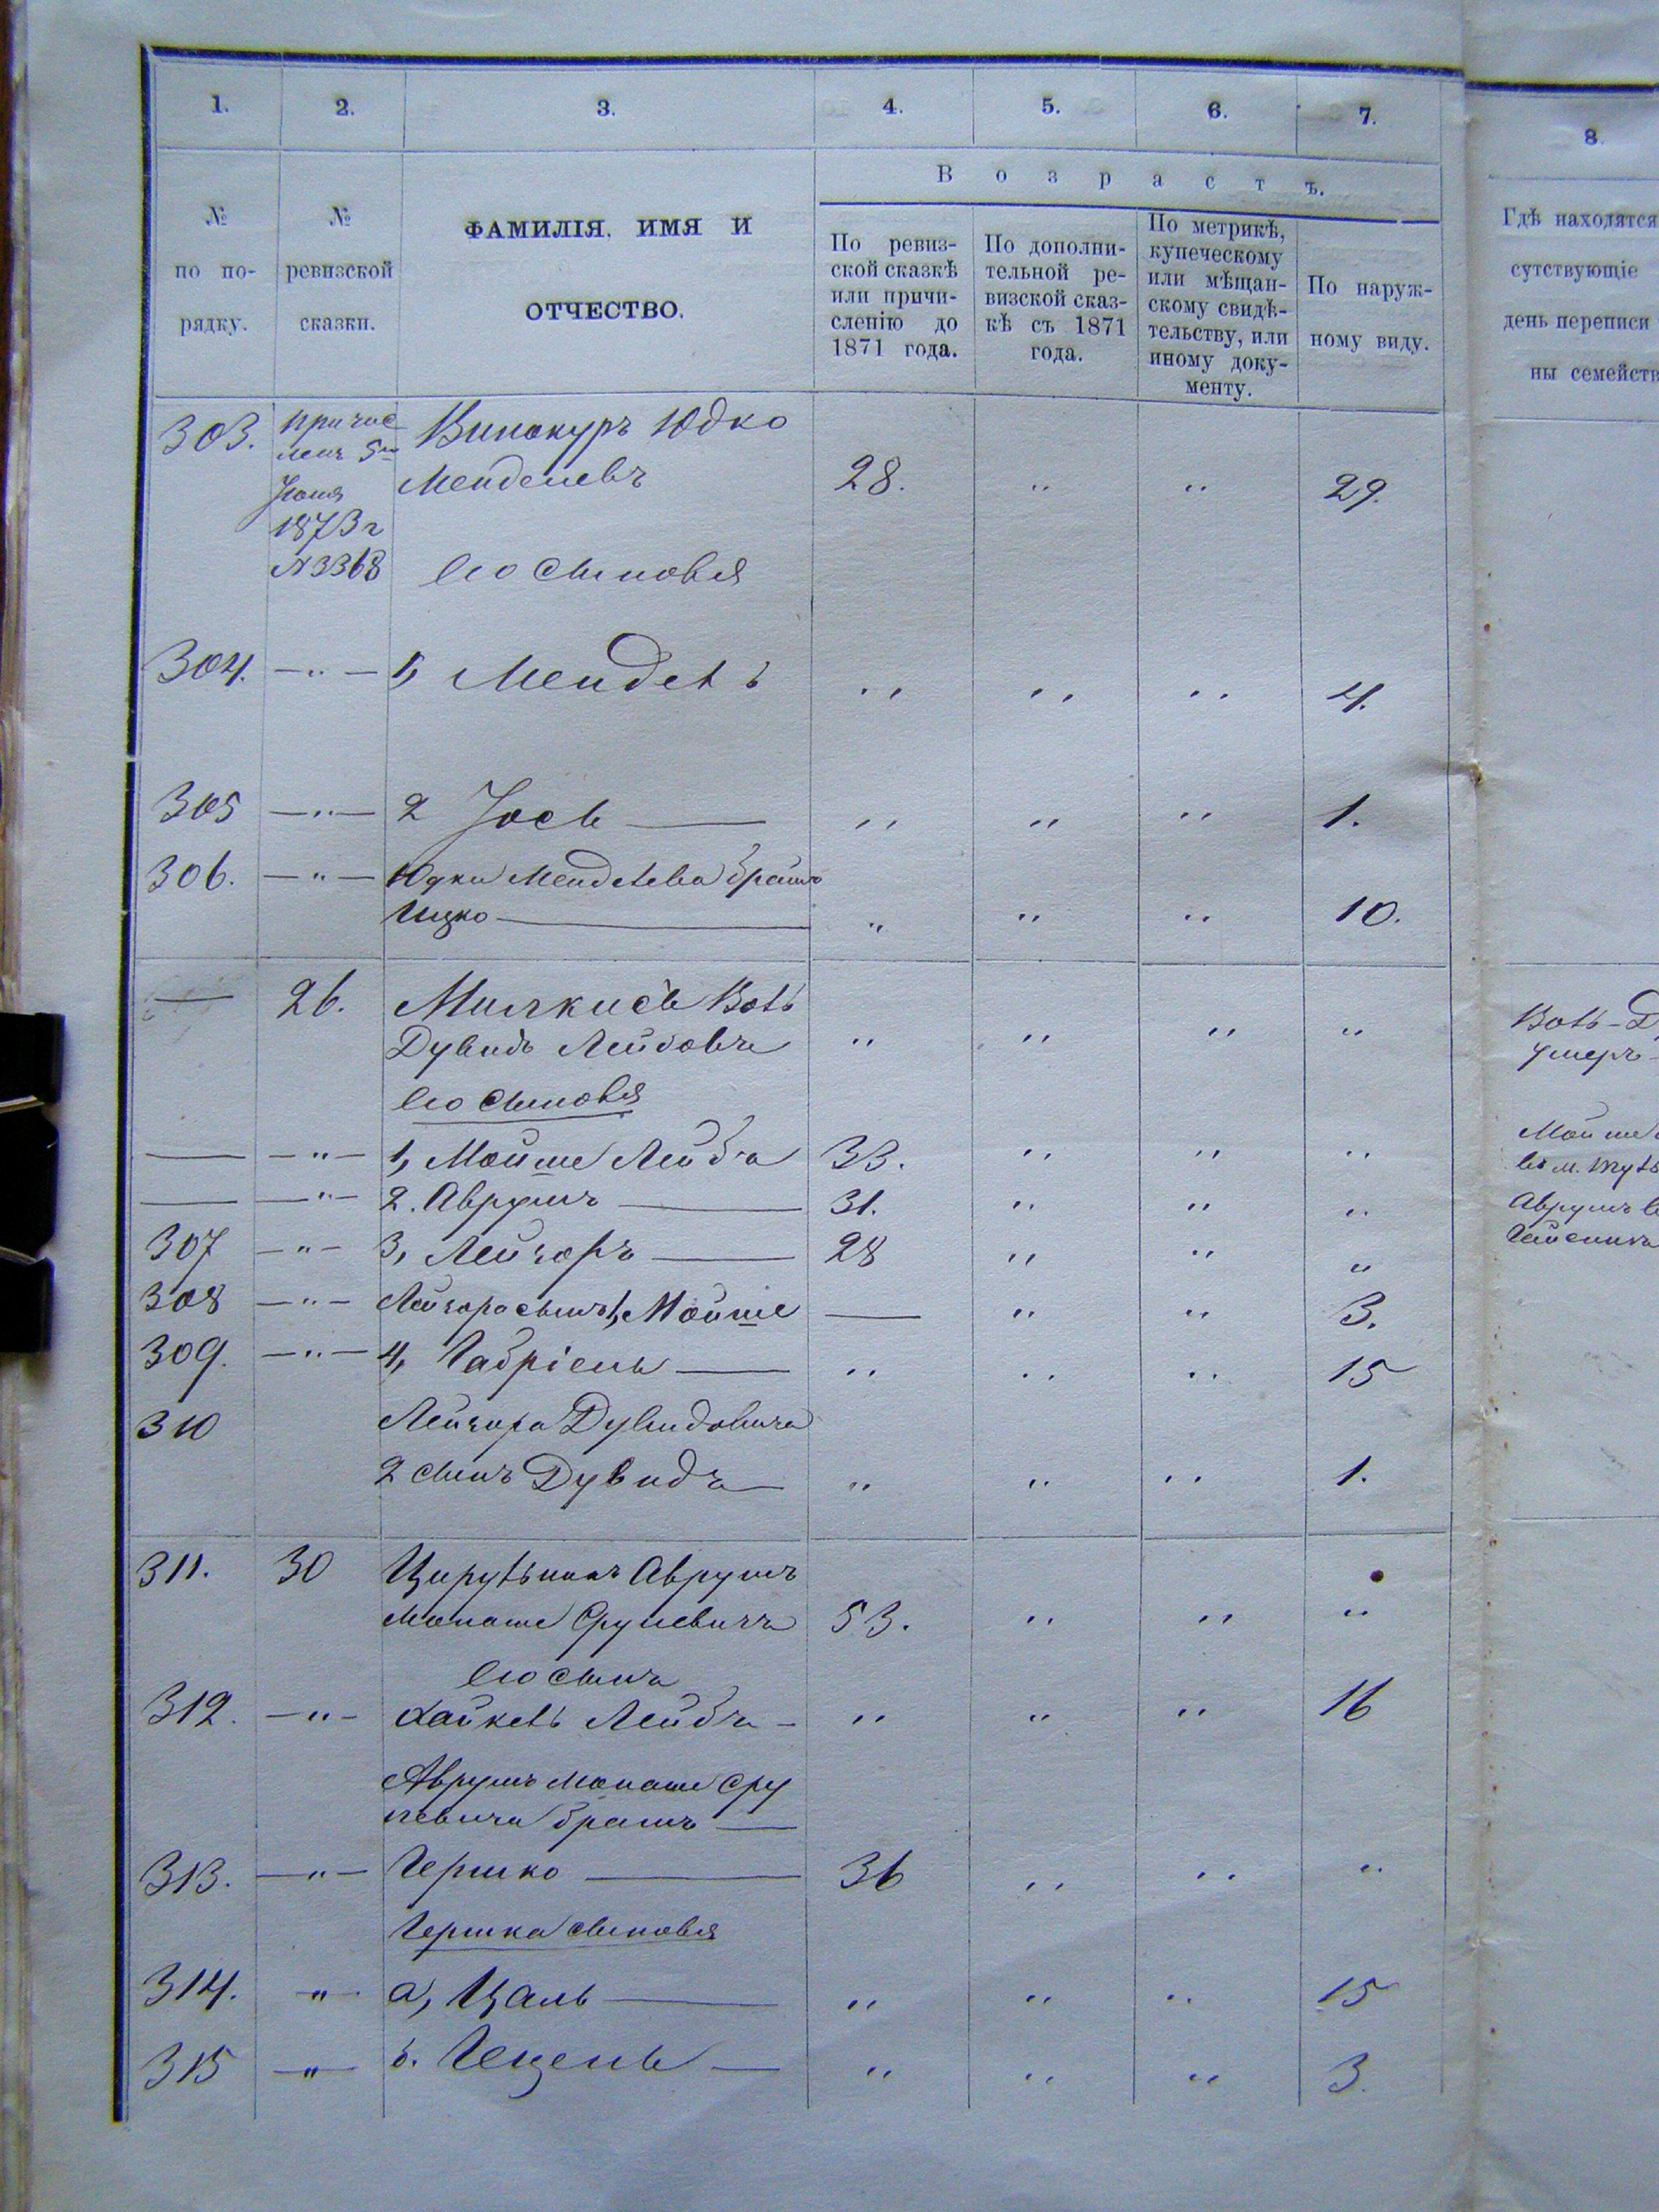 1. 2. 3. 4. 5. 6. 7. 8.
Возрастъ.
№ по порядку.
№ ревизской сказки.
ФАМИЛІЯ, ИМЯ И
ОТЧЕСТВО.
По ревиз-
ской сказкѣ
или причи-
сленію до
1871 года.
По дополни-
тельной ре-
визской сказ-
кѣ съ 1871
года.
По метрикѣ,
купеческому
или мѣщан-
скому свидѣ-
тельству, или
иному доку-
менту.
По наруж-
ному виду.
Гдѣ находятся
сутствующіе
день переписи
ны семейств
303. причис
ленъ 5го
Іюня
1873 г
№ 3368
Винокуръ Юдко
Менделевъ 28. " " 29.
Его сыновья
304. —"— 1, Мендель " " " 4.
305 —"— 2 Іось — " " " 1.
306. —"— Юдки Менделева братъ
Ицко — " " " 10.
— 26. Милькисъ Воль
Дувидъ Лейбовъ " " " "
Его сыновья
— —"— 1, Мойше Лейба 33. " " "
— —"— 2. Аврумъ — 31. " " "
307 —"— 3, Лейзоръ — 28 " " "
308 —"— Лейзора сынъ 1, Мойше — " " 3.
309. —"— 4, Габріель — " " " 15
310 Лейзора Дувидовича
2 сынъ Дувидъ — " " " 1.
311. 30 Цирульникъ Аврумъ
Монаше Срулевичъ 53. " " "
Его сынъ
312. —"— Хайкель Лейба — " " " 16
Аврумъ Монаше Сру
левича братъ —
313. —"— Гершко — 36 " " "
Гершка сыновья
314. " а, Цаль — " " " 15
315 —"— б. Гецель — " " " 3.
Воль-Д
умеръ
Мойше
въ м.
Аврумъ в